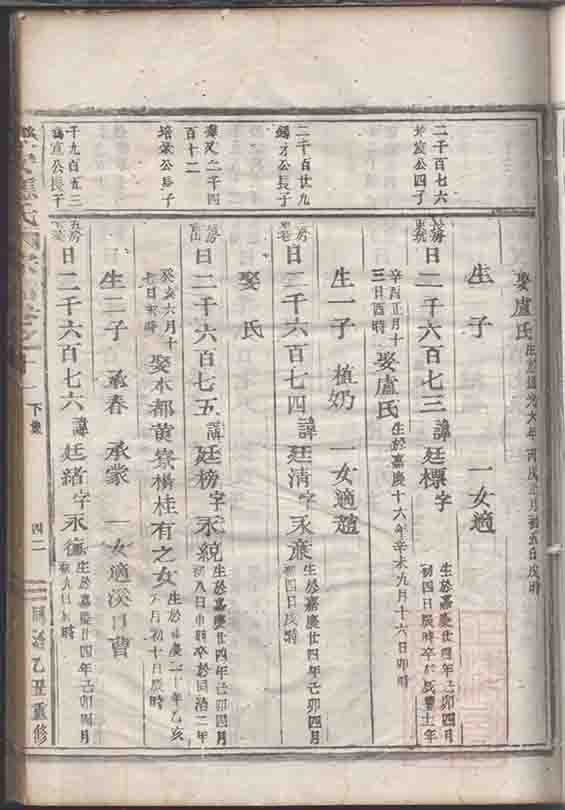 娶盧氏 生於道光六年丙戌正月初五日戌時
二千百七六
公四子
生子 一女適
房 日二千六百七三 諱廷標字 生於嘉慶廿四年己卯四月
初四日辰時卒於咸豐十一年
辛酉正月十
三日酉時 娶盧氏 生於嘉慶十六年辛未九月十六日卯時
二千百廿九
公長子
生一子 植奶 一女適趙
房 日二千六百七四 諱廷清字永 生於嘉慶廿四年己卯四月
初四日戌時
又二千四
百十二
培 公長子
娶氏
房 日二千六百七五 諱廷榜字永統 生於嘉慶廿四年己卯四月
初八日 時卒於同治二年
癸亥六月十
七日未時 娶本都黃寮楊桂有之女 生於嘉慶二十年乙亥
六月初十日辰時
生二子 承春 承蒙 一女適溪口曹
千九百五三
宣公長子
房 日二千六百七六 諱廷緒字永 生於嘉慶廿四年己卯四月
初九日 時
張氏
下集
四二
同治乙丑重修